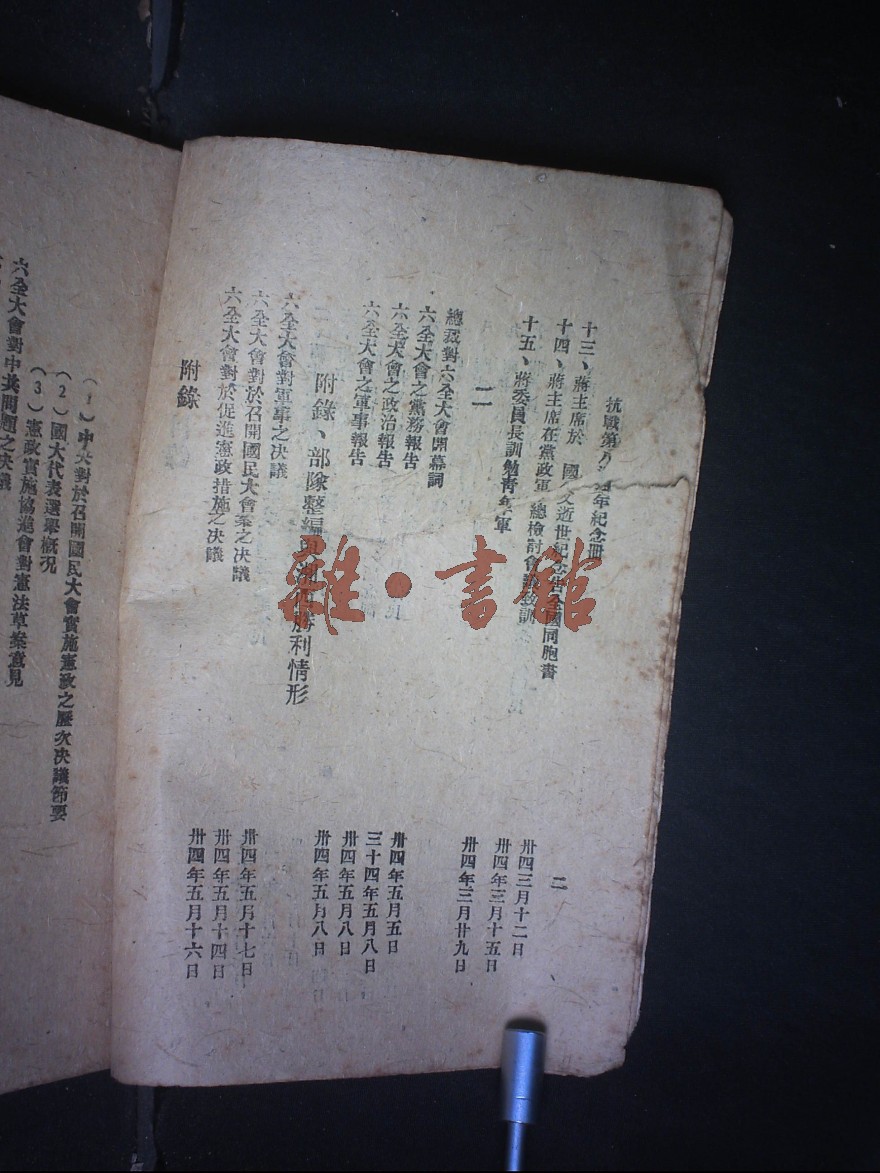 抗戰第八週年紀念冊
二
十三、蔣主席於 國父逝世紀念告全國同胞書
卅四三月十二日
十四、蔣主席在黨政軍總檢討會議致訓
卅四年三月十五日
十五、蔣委員長訓勉青年軍
卅四年三月廿九日
二
總裁對六全大會開幕詞
卅四年五月五日
六全大會之黨務報告
三十四年五月八日
六全大會之政治報告
卅四年五月八日
六全大會之軍事報告
卅四年五月八日
附錄、部隊整編與湘西勝利情形
六全大會對軍事之决議
卅四年五月十七日
六全大會對於召開國民大會案之决議
卅四年五月十四日
六全大會對於促進憲政措施之决議
卅四年五月十六日
附錄
(1)中共對於召開國民大會實施憲政之歷次决議節要
(2)國大代表選舉概况
(3)憲政實施協進會對憲法草案意見
六全大會對中共問題之决議
雜·書館